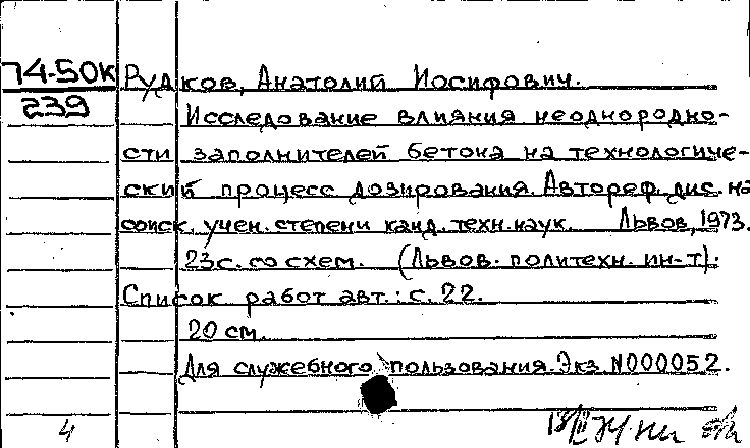 74-50К
239
Рудков, Анатолий Иосифович.
Исследование влияния неоднородно-
сти заполнителей бетона на технологиче-
ский процесс дозирования. Автореф. дис. на
соиск. учен. степени канд. техн. наук. Львов, 1973.
23 с. со схем. (Львов. политехн. ин-т).
Список работ авт.: с. 22.
20 см.
Для служебного пользования. Экз. №000052.
4